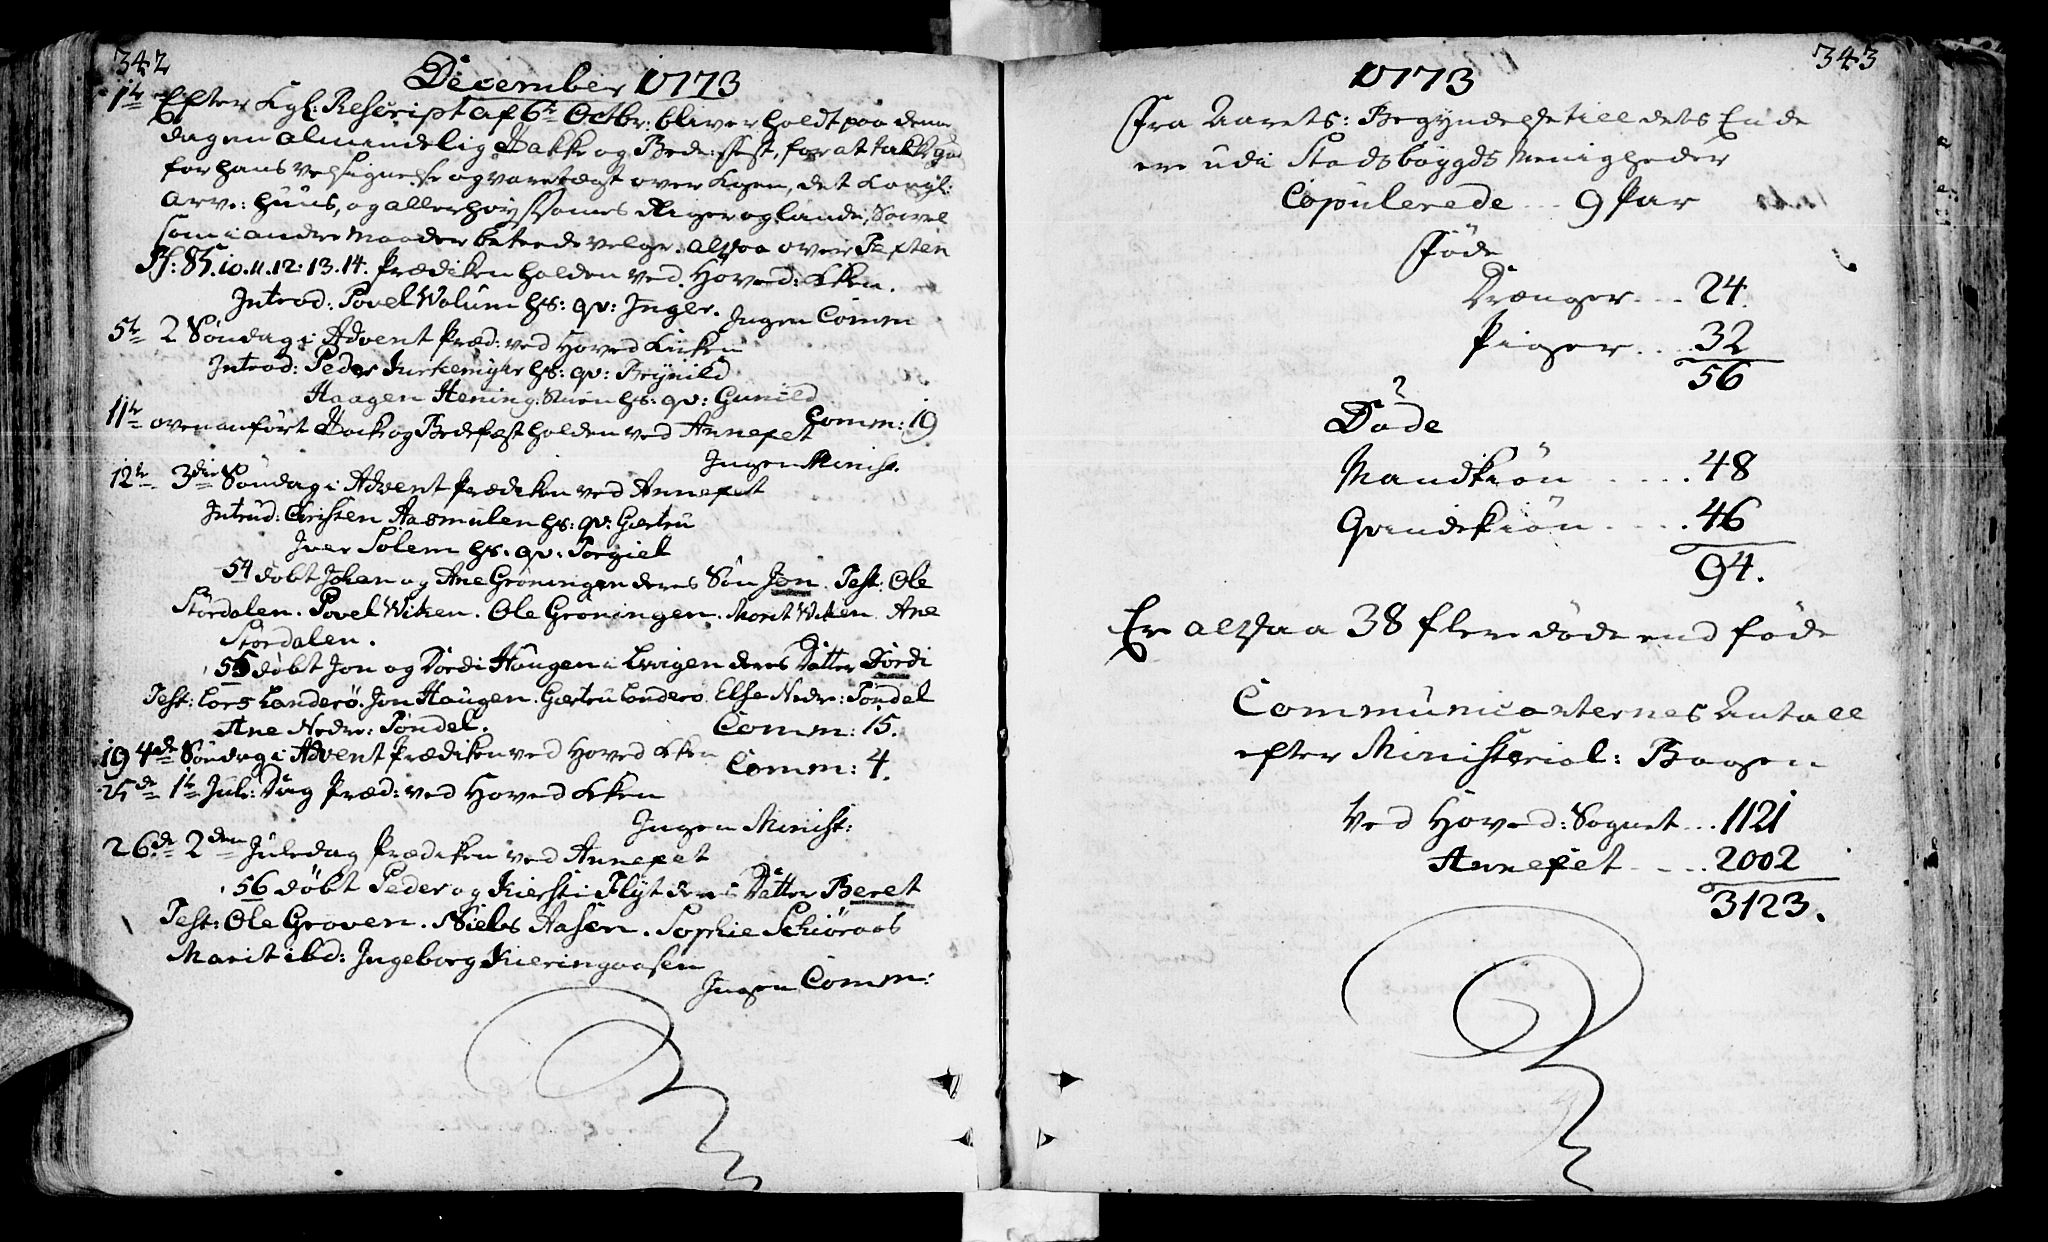 342
December 1773
1te Efter Kgl: Rescript af 6te Octbr: bliver holdt paa denne
dag en almindelig Takke og Bede: fest, for at takke Gud
for hans velsignelse og varetægt over Kgen, det Kongl:
Arve: Huus, og allerhøystsammes Riger og lande, Saavel
som i andre Maader beteede velgr. altsaa over Texten
Ps: 85. 10. 11. 12. 13. 14. Prædiken holden ved Hoved: Kken.
Introd: Povel Wolum hs: qv: Inger. Ingen Comm
5te 2 Søndag i Advent Præd: ved Hoved Kirken
Introd: Peder Kirkemyhr hs: qv: Brynild
Haagen Hening: hs: qv: Gunild
Comm: 19
11te ovenanført Tack og Bedefæst holden ved Annexet
Ingen Minist.
12te 3die Søndag i Advent Prædiken ved Annexet
Introd: Christen Aasmulen hs: qv: Gertru
Iver Solem hs: qv: Torgiel
54 døbt Johan og Ane Grøningen deres Søn Jon. Test: Ole
Størdalen. Povel Wiken. Ole Grøningen. Marit Wiken. Ane
Størdalen.
55 døbt Jon og Dordi Haugen i deres Datter Dordi
Test: Lars Landerø. Jon Haugen. Gertru Landerø. Else Nedre: Tøndel
Ane Nedre: Tøndel. Comm: 15.
19 4de Søndag i Advent Prædiken ved Hoved Kken
Comm: 4.
25de 1te Jule: Dag Præd: ved Hoved Kken
Ingen Minist:
26de 2den Juledag Prædiken ved Annexet
56 døbt Peder og Kiersti Flyt deres Datter Beret
Test: Ole Groven. Niels Aasen. Sophie Schiøraas
Marit ibd: Ingeborg Kieringaasen
Ingen Comm:
343
1773
Fra Aarets: Begyndelse till dets Ende
ere udi Stadsbøygds Menigheder
Copulerede - - 9 Par
Føde
Drænger - - - 24.
Piger - - - 32
56
Døde
Mandkiøn - - - - - 48
Qvindekiøn - - - - 46
94.
Er altsaa 38 flere døde end føde
Communicanternes Antall
efter Ministerial: Bogen
Ved Hoved: Sognet - - - 1121
Annexet - - - - 2002
3123.